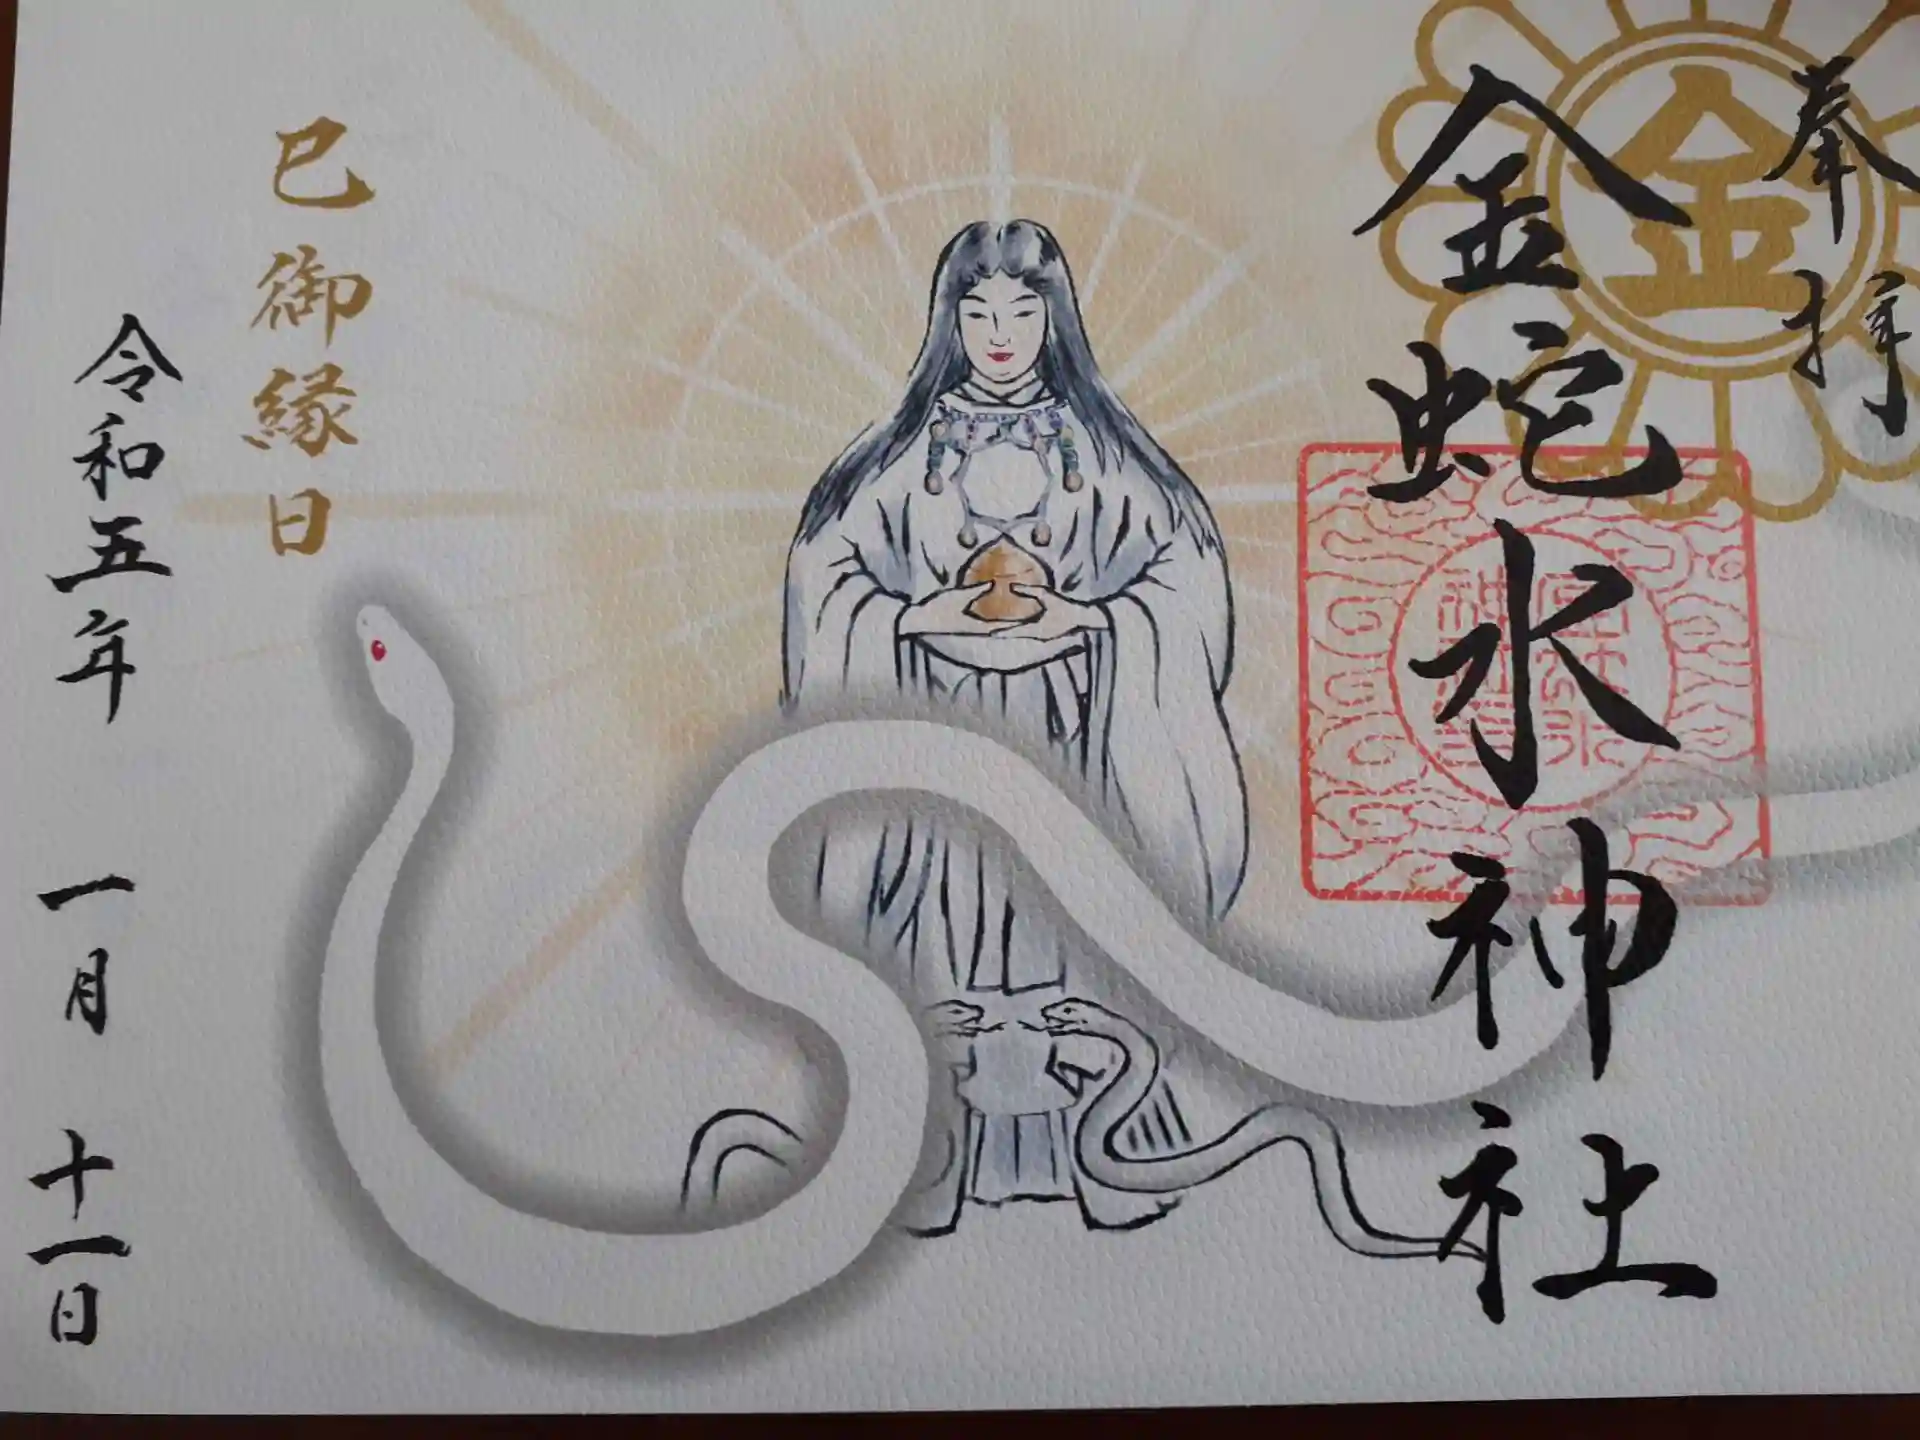 奉拝
金
金蛇水神社
巳御縁日
令和五年 一月 十一日